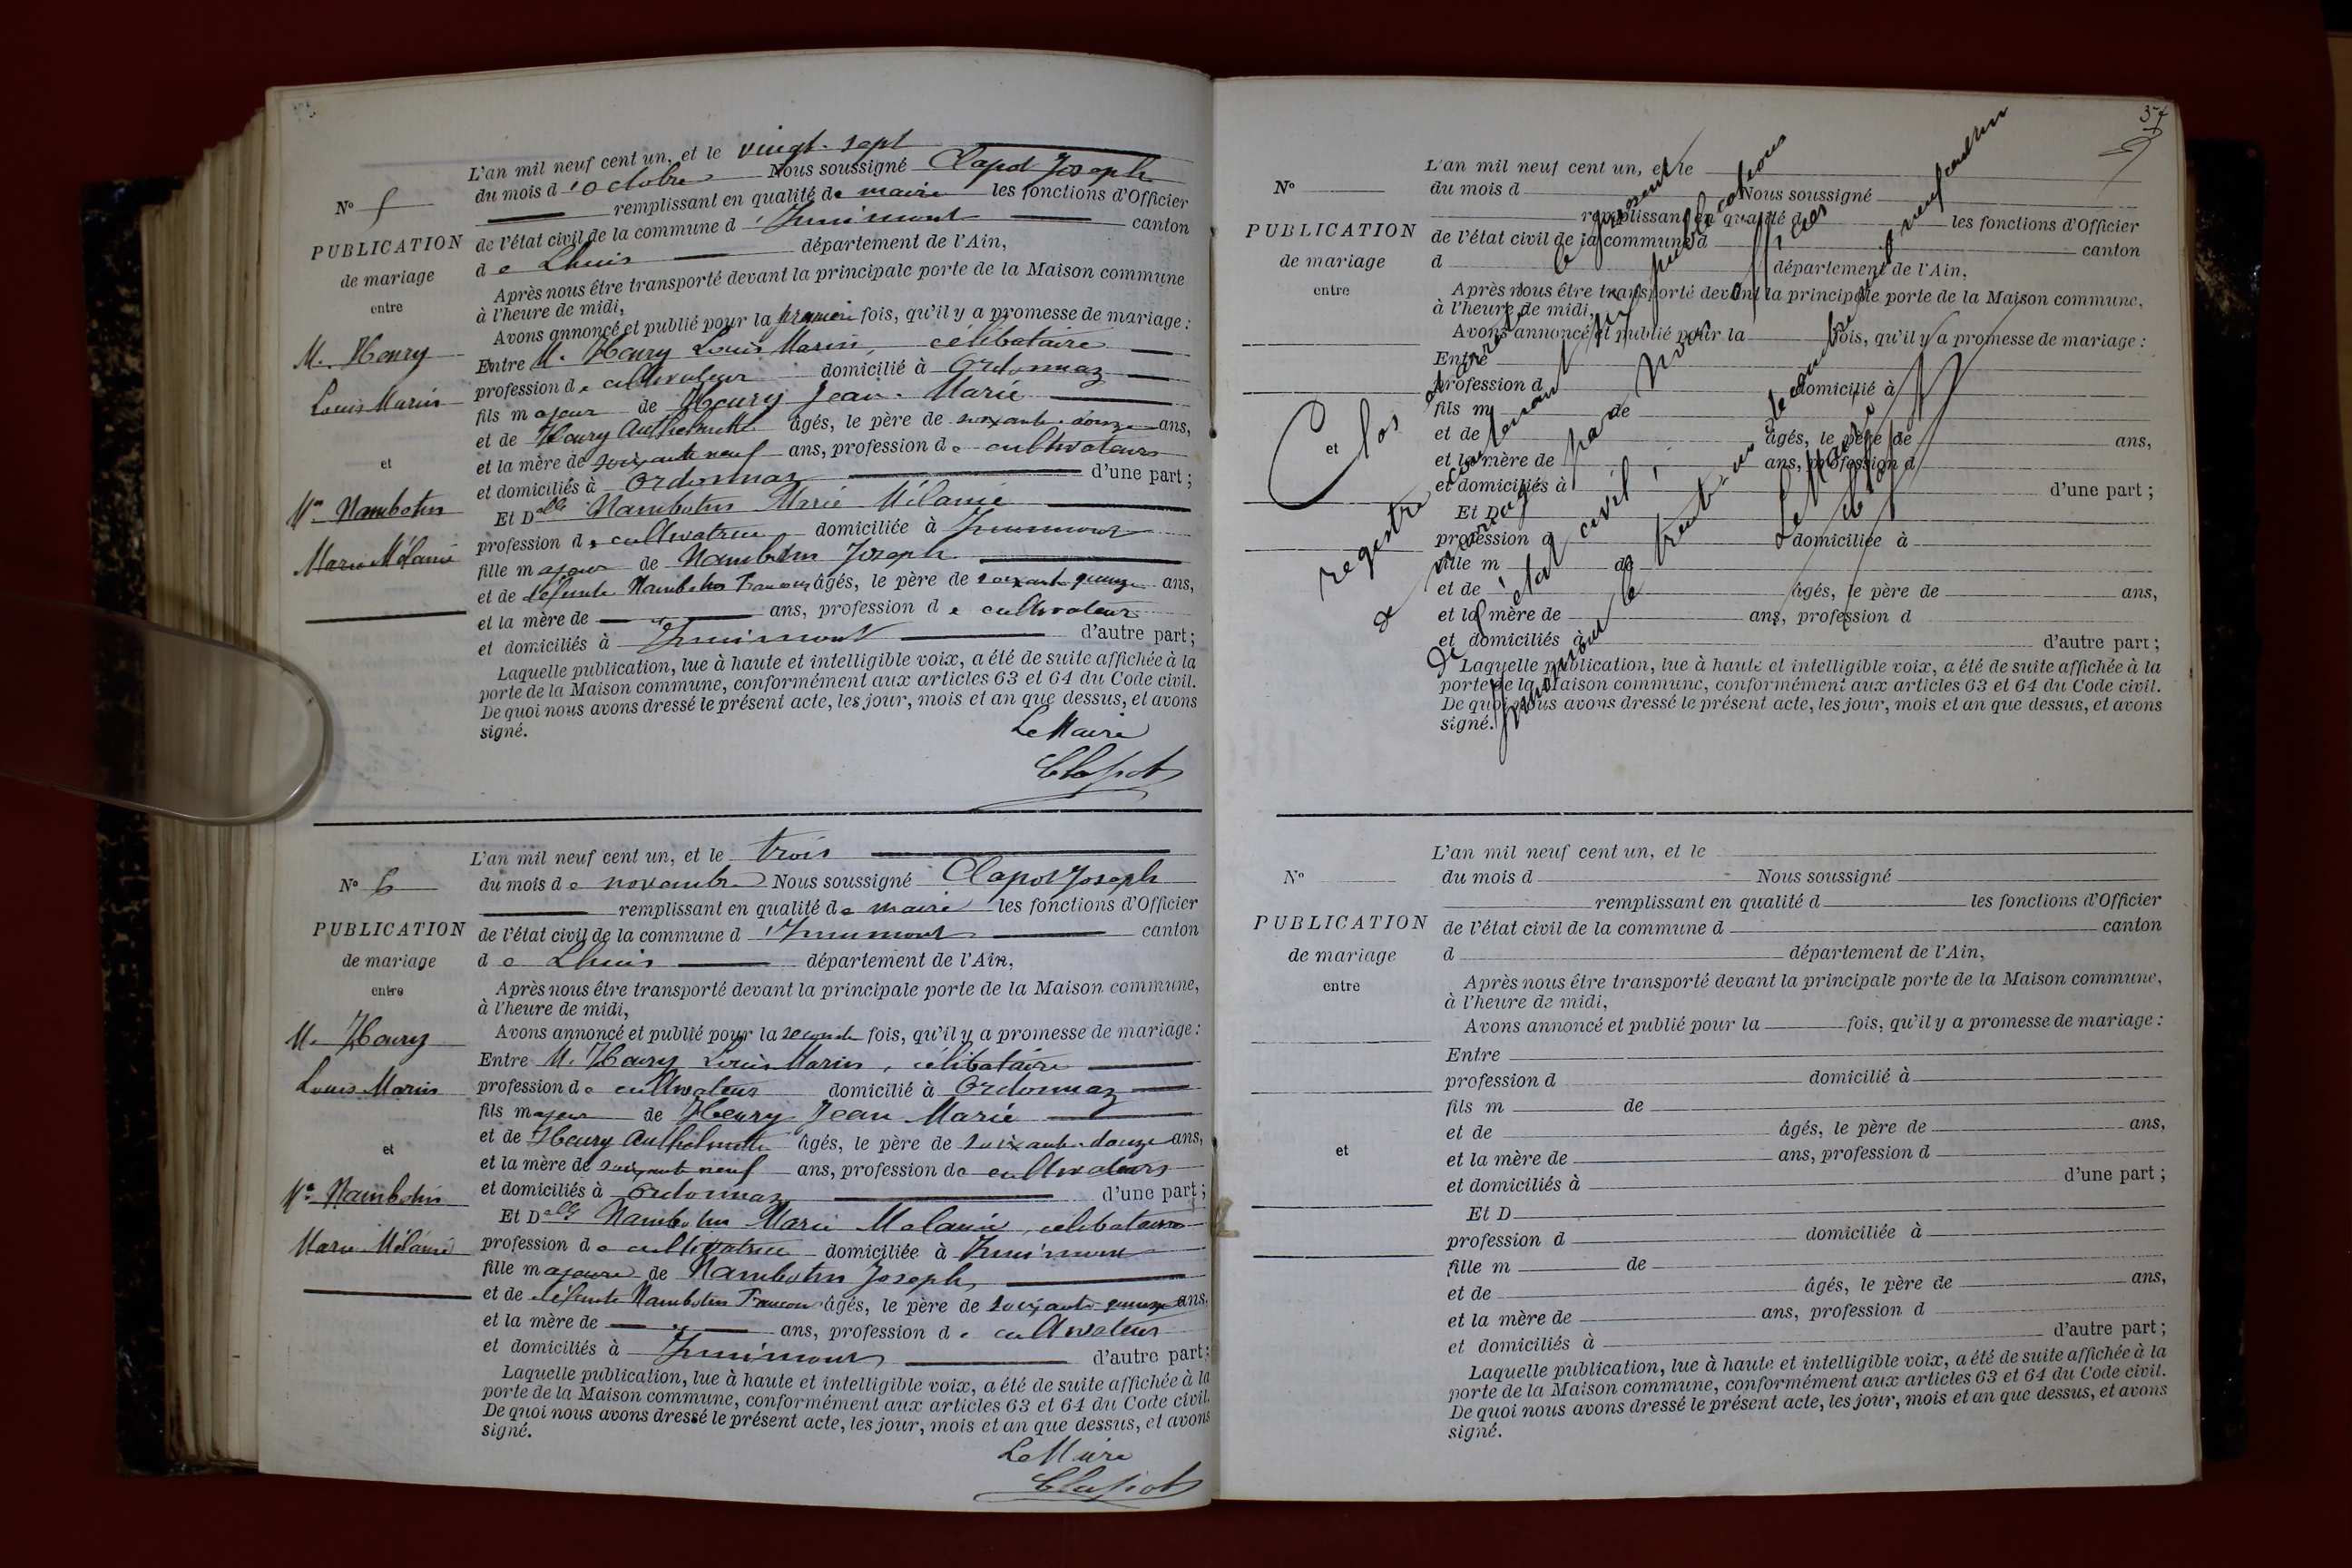 L'an mil neuf cent un, et le vingt-sept
du mois d'octobre Nous soussigné Clapot Joseph
remplissant en qualité de maire les fonctions d'Officier
de l'état civil de la commune d'Innimont canton
de Lhuis département de l'Ain,
Après nous être transporté devant la principale porte de la Maison commune
à l'heure de midi,
Avons annoncé et publié pour la première fois, qu'il y a promesse de mariage :
Entre M. Henry Louis Marin, célibataire
profession de cultivateur domicilié à Ordonnaz
fils majeur de Henry Jean-Marie
et de Henry Anthelmette âgés, le père de soixante-douze ans,
et la mère de soixante neuf ans, profession de cultivateurs
et domiciliés à Ordonnaz d'une part ;
Et Delle Nambotin Marie Mélanie
profession de cultivatrice domiciliée à Innimont
fille majeure de Nambotin Joseph
et de défunte Nambotin âgés, le père de soixante quinze ans,
et la mère de ans, profession de cultivateur
et domiciliés à Innimont d'autre part ;
Laquelle publication, lue à haute et intelligible voix, a été de suite affichée à la
porte de la Maison commune, conformément aux articles 63 et 64 du Code civil.
De quoi nous avons dressé le présent acte, les jour, mois et an que dessus, et avons
signé.
Le Maire
Clapot
N° 5
PUBLICATION
de mariage
entre
M. Henry
Louis Marin
et
Nambotin
Marie Mélanie
L'an mil neuf cent un, et le trois
du mois de novembre Nous soussigné Clapot Joseph
remplissant en qualité de maire les fonctions d'Officier
de l'état civil de la commune d'Innimont canton
de Lhuis département de l'Ain,
Après nous être transporté devant la principale porte de la Maison commune,
à l'heure de midi,
Avons annoncé et publié pour la seconde fois, qu'il y a promesse de mariage :
Entre M. Henry Louis Marin, célibataire
profession de cultivateur domicilié à Ordonnaz
fils majeur de Henry Jean Marie
et de Henry Anthelmette âgés, le père de soixante-douze ans,
et la mère de soixante neuf ans, profession de cultivateurs
et domiciliés à Ordonnaz d'une part ;
Et Delle Nambotin Marie Mélanie, célibataire
profession de cultivatrice domiciliée à Innimont
fille majeure de Nambotin Joseph
et de défunte Nambotin âgés, le père de soixante quinze ans,
et la mère de ans, profession de cultivateur
et domiciliés à Innimont d'autre part ;
Laquelle publication, lue à haute et intelligible voix, a été de suite affichée à la
porte de la Maison commune, conformément aux articles 63 et 64 du Code civil.
De quoi nous avons dressé le présent acte, les jour, mois et an que dessus, et avons
signé.
Le Maire
Clapot
N° 6
PUBLICATION
de mariage
entre
M. Henry
Louis Marin
et
Nambotin
Marie Mélanie
L'an mil neuf cent un, et le
du mois d Nous soussigné
remplissant en qualité d les fonctions d'Officier
de l'état civil de la commune d canton
d département de l'Ain,
Après nous être transporté devant la principale porte de la Maison commune,
à l'heure de midi,
Avons annoncé et publié pour la fois, qu'il y a promesse de mariage :
Entre
profession d domicilié à
fils m de
et de âgés, le père de ans,
et la mère de ans, profession d
et domiciliés à d'une part ;
Et D
profession d domiciliée à
fille m de
et de âgés, le père de ans,
et la mère de ans, profession d
et domiciliés à d'autre part ;
Laquelle publication, lue à haute et intelligible voix, a été de suite affichée à la
porte de la Maison commune, conformément aux articles 63 et 64 du Code civil.
De quoi nous avons dressé le présent acte, les jour, mois et an que dessus, et avons
signé.
N°
PUBLICATION
de mariage
entre
et
Clos et arrêté le présent
registre contenant six publications
de mariage par nous officier
de l'état civil,
le trente un décembre mil neuf cent un
Le Maire
Clapot
L'an mil neuf cent un, et le
du mois d Nous soussigné
remplissant en qualité d les fonctions d'Officier
de l'état civil de la commune d canton
d département de l'Ain,
Après nous être transporté devant la principale porte de la Maison commune,
à l'heure de midi,
Avons annoncé et publié pour la fois, qu'il y a promesse de mariage :
Entre
profession d domicilié à
fils m de
et de âgés, le père de ans,
et la mère de ans, profession d
et domiciliés à d'une part ;
Et D
profession d domiciliée à
fille m de
et de âgés, le père de ans,
et la mère de ans, profession d
et domiciliés à d'autre part ;
Laquelle publication, lue à haute et intelligible voix, a été de suite affichée à la
porte de la Maison commune, conformément aux articles 63 et 64 du Code civil.
De quoi nous avons dressé le présent acte, les jour, mois et an que dessus, et avons
signé.
N°
PUBLICATION
de mariage
entre
et